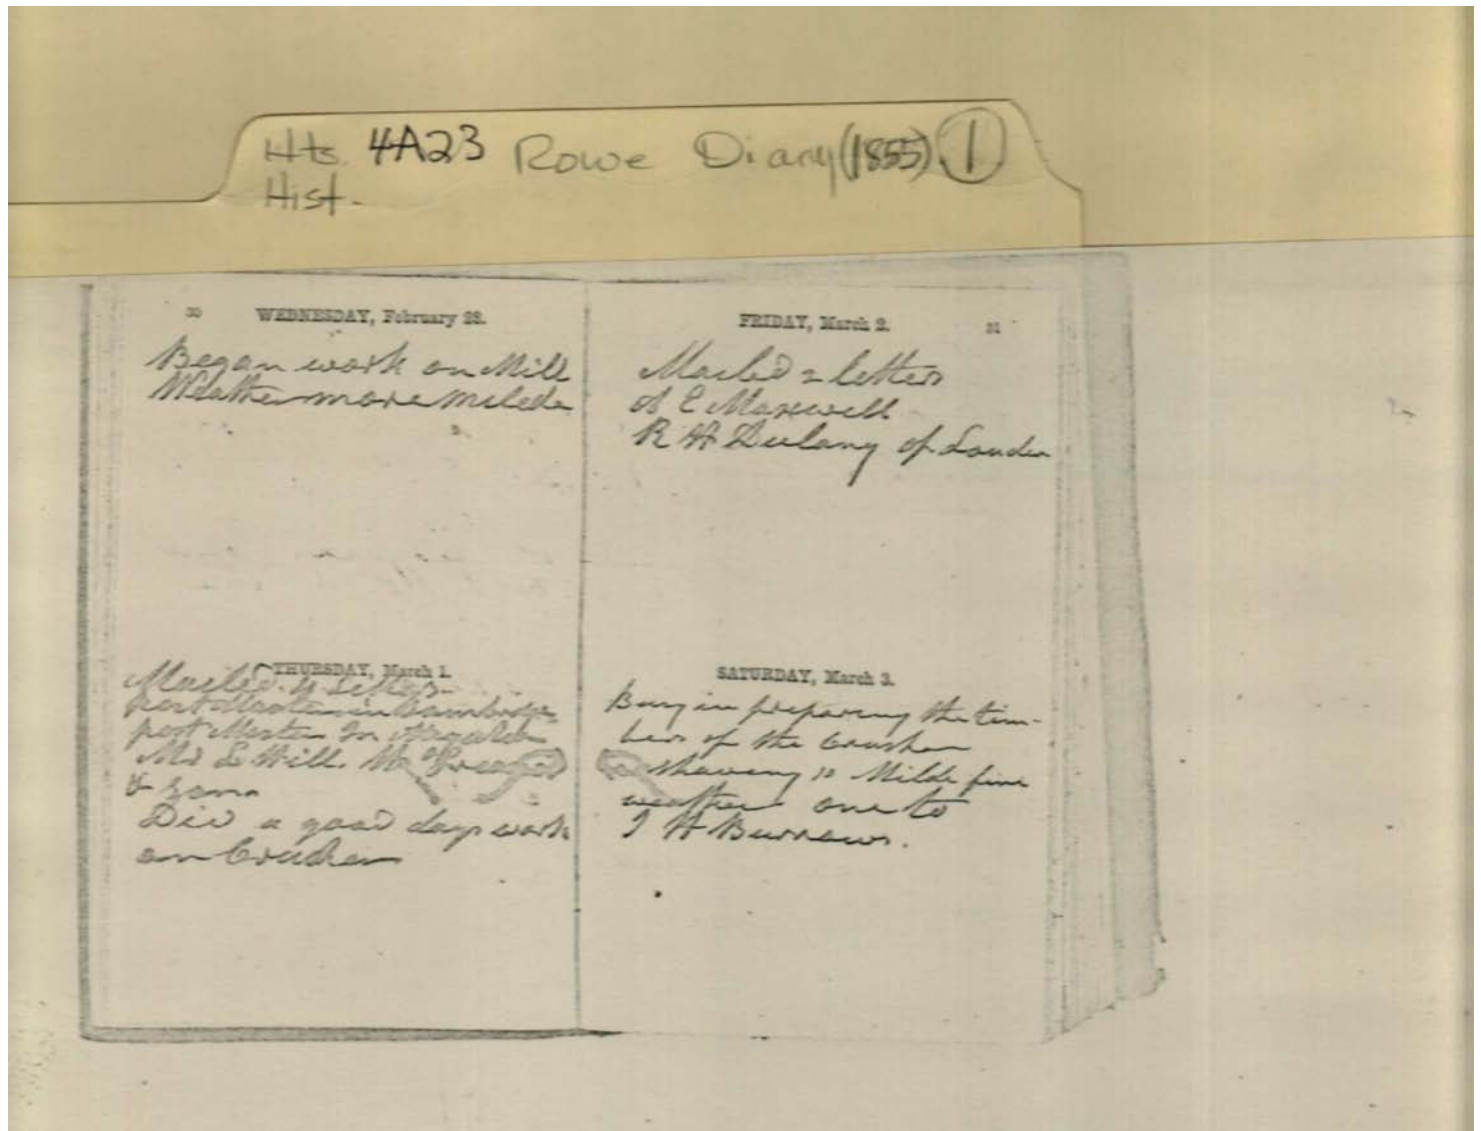 Hts. 4A23 Rowe Diary (1855) 1
Hist.
30 WEDNESDAY, February 28.
Began work on Mill
Weather more Milde
THURSDAY, March 1.
Mailed 4 letters
post Master in Cambridge
post Master In
Mr L Hill. Mr
& Sons
Did a good days work
on Crusher
FRIDAY, March 2. 31
Mailed 2 letters
A C Maxwell
R H Dulany of Louden
SATURDAY, March 3.
Busy in prepareing the tim-
bers of the Crusher
shaveing is Milde fine
weather one to
J H Burrows.